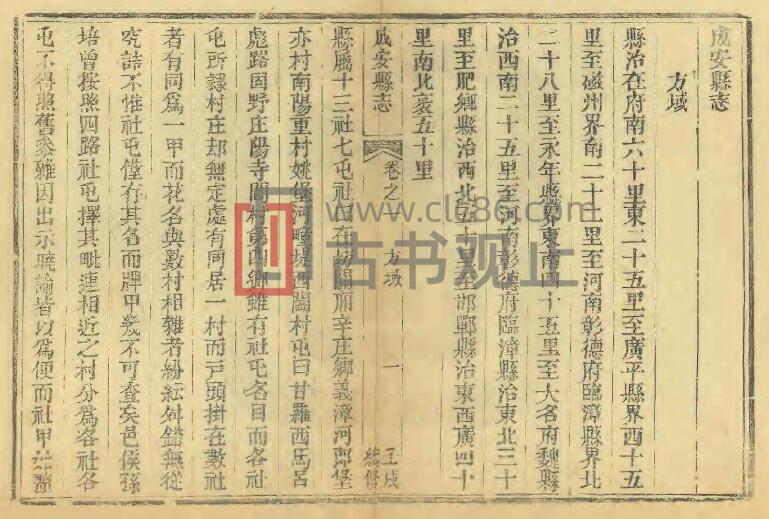 成安縣志
方域
縣治在府南六十里東二十五里至廣平縣界西十五
里至磁州界南二十里至河南彰德府臨漳縣界北
二十八里至永年縣界東南四十五里至大名府魏縣
治西南二十五里至河南彰德府臨漳縣治東北三十
里至肥鄉縣治西北五十里至邯鄲縣治東西廣四十
里南北袤五十里
成安縣志 卷之 方域 一 壬戌 續修
縣屬十三社七屯社曰在城關廂辛庄鄉義漳河郎堡
亦村南陽重村姚堡河疃堤西閻村屯曰甘羅西馬呂
彪路固野庄陽寺閻村第四鄉雖有社屯名目而各社
屯所隸村庄却無定處有同居一村而戸頭掛在數社
者有同爲一甲而花名與數村相雜者紛紜舛錯無從
究詰不惟社屯僅存其名而牌甲幾不可查矣邑侯孫
培曾按照四路社屯擇其毗連相近之村分爲各社各
屯不得照舊參雜因出示曉諭皆以爲便而社甲
www.cls86.com
古书观止